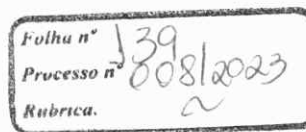 Folha nº 139
Processo nº 008/2023
Rubrica.